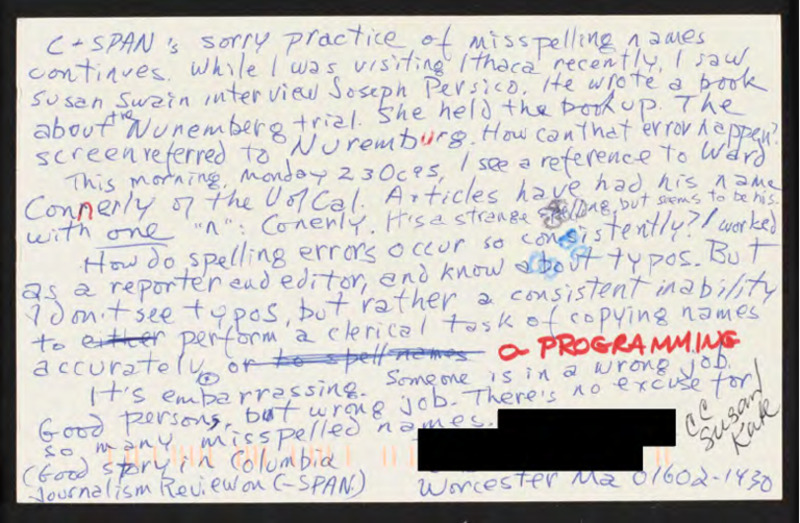 C-SPAN's sorry practice of misspelling names
continues. While I was visiting Ithaca recently, I saw
Susan Swain interview Joseph Persico. He wrote a book
about the Nuremberg trial. She held the book up. The
screen referred to Nuremburg. How can that error happen?
This morning, Monday 23 Oc95, I see a reference to Ward
Connerly of the U of Cal. Articles have had his name
with one "n": Conerly. It's a strange spelling, but seems to be his.
How do spelling errors occur so consistently? I worked
as a reporter and editor, and know about typos. But
I don't see typos, but rather a consistent inability
to either perform a clerical task of copying names
accurately, or to spell names
PROGRAMMING
It's embarrassing. Someone is in a wrong job.
Good persons, but wrong job. There's no excuse for
so many misspelled names.
(Good story in Columbia
Journalism Review on C-SPAN.)
Worcester Ma 01602-1430
CC
Susan
Kate